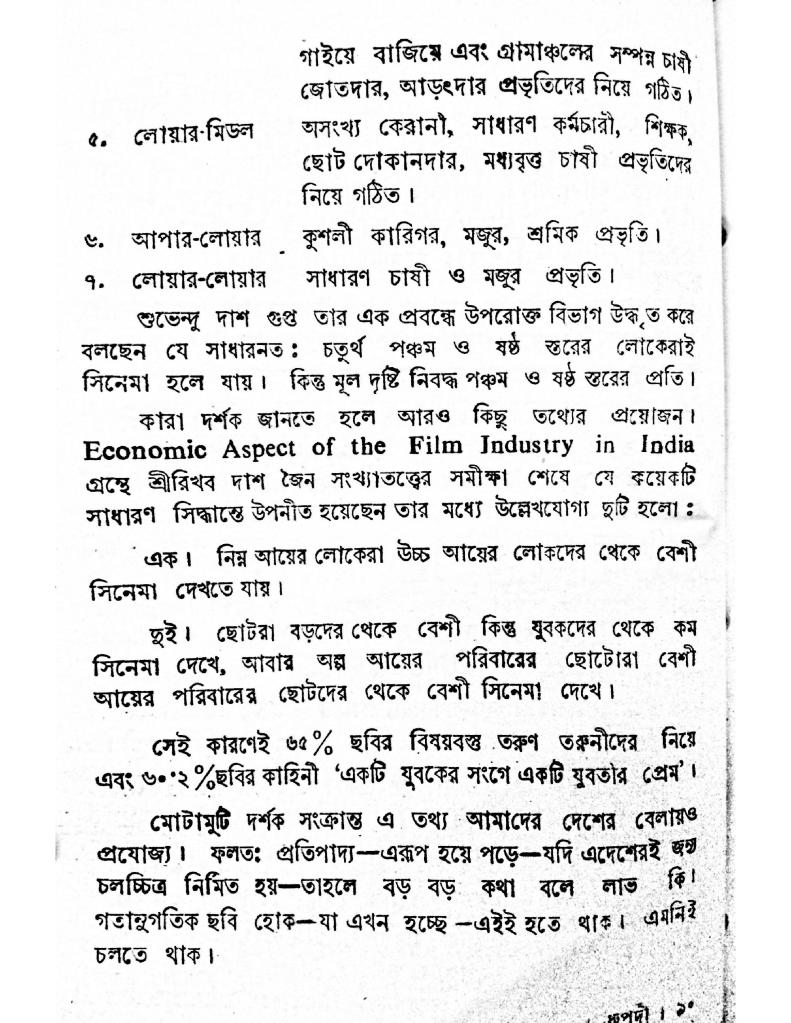 গাইয়ে বাজিয়ে এবং গ্রামাঞ্চলের সম্পন্ন চাষী
জোতদার, আড়ৎদার প্রভৃতিদের নিয়ে গঠিত।
৫. লোয়ার-মিডল অসংখ্য কেরানী, সাধারণ কর্মচারী, শিক্ষক,
ছোট দোকানদার, মধ্যবৃত্ত চাষী প্রভৃতিদের
নিয়ে গঠিত।
৬. আপার-লোয়ার কুশলী কারিগর, মজুর, শ্রমিক প্রভৃতি।
৭. লোয়ার-লোয়ার সাধারণ চাষী ও মজুর প্রভৃতি।
শুভেন্দু দাশ গুপ্ত তার এক প্রবন্ধে উপরোক্ত বিভাগ উদ্ধৃত করে
বলছেন যে সাধারনত : চতুর্থ পঞ্চম ও ষষ্ঠ স্তরের লোকেরাই
সিনেমা হলে যায়। কিন্তু মূল দৃষ্টি নিবদ্ধ পঞ্চম ও ষষ্ঠ স্তরের প্রতি।
কারা দর্শক জানতে হলে আরও কিছু তথ্যের প্রয়োজন।
Economic Aspect of the Film Industry in India
গ্রন্থে শ্রীরিখব দাশ জৈন সংখ্যাতত্ত্বের সমীক্ষা শেষে যে কয়েকটি
সাধারণ সিদ্ধান্তে উপনীত হয়েছেন তার মধ্যে উল্লেখযোগ্য দুটি হলো :
এক। নিম্ন আয়ের লোকেরা উচ্চ আয়ের লোকদের থেকে বেশী
সিনেমা দেখতে যায়।
দুই। ছোটরা বড়দের থেকে বেশী কিন্তু যুবকদের থেকে কম
সিনেমা দেখে, আবার অল্প আয়ের পরিবারের ছোটোরা বেশী
আয়ের পরিবারের ছোটদের থেকে বেশী সিনেমা দেখে।
সেই কারণেই ৬৫% ছবির বিষয়বস্তু তরুণ তরুনীদের নিয়ে
এবং ৬০.২% ছবির কাহিনী ‘একটি যুবকের সংগে একটি যুবতীর প্রেম’।
মোটামুটি দর্শক সংক্রান্ত এ তথ্য আমাদের দেশের বেলায়ও
প্রযোজ্য। ফলতঃ প্রতিপাদ্য—এরূপ হয়ে পড়ে—যদি এদেশেরই জন্য
চলচ্চিত্র নির্মিত হয়—তাহলে বড় বড় কথা বলে লাভ কি।
গতানুগতিক ছবি হোক—যা এখন হচ্ছে—এইই হতে থাক। এমনিই
চলতে থাক।